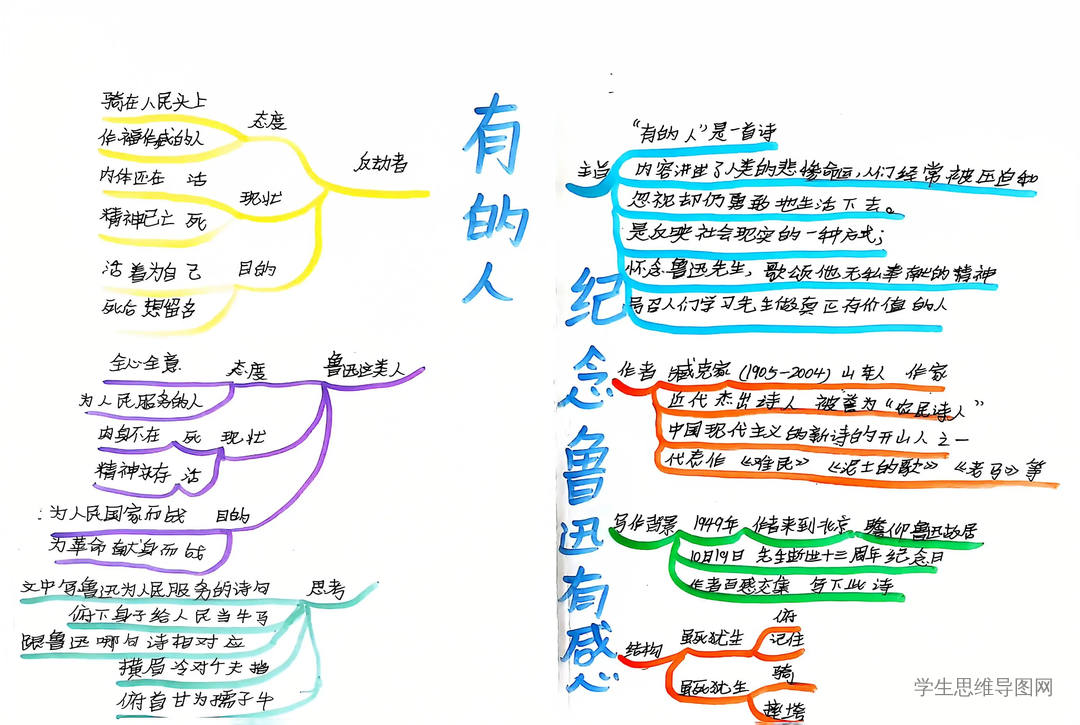 有的人
纪念鲁迅有感
反动者
态度
骑在人民头上
作福作威的人
现壮
内体还在 活
精神已亡 死
目的
活着为自己
死后想留名
鲁迅这类人
态度
全心全意
为人民服务的人
现壮
肉身不在 死
精神永存 活
目的
为人民国家而战
为革命献身而战
思考
文中写鲁迅为人民服务的诗句
俯下身子给人民当牛马
跟鲁迅哪句诗相对应
横眉冷对千夫指
俯首甘为孺子牛
主旨
“有的人”是一首诗
内容讲出了人类的悲惨命运,人们经常被压迫和
忽视却仍勇敢地生活下去。
是反映社会现实的一种方式;
怀念鲁迅先生,歌颂他无私奉献的精神
号召人们学习先生做真正有价值的人
作者
臧克家 (1905-2004) 山东人 作家
近代杰出诗人 被誉为“农民诗人”
中国现代主义的新诗的开山人之一
代表作《难民》《泥土的歌》《老马》等
写作背景
1949年 作者来到北京 瞻仰鲁迅故居
10月19日 先生逝世十三周年纪念日
作者百感交集 写下此诗
结构
虽死犹生
俯
记住
虽死犹生
骑
摔垮
学生思维导图网